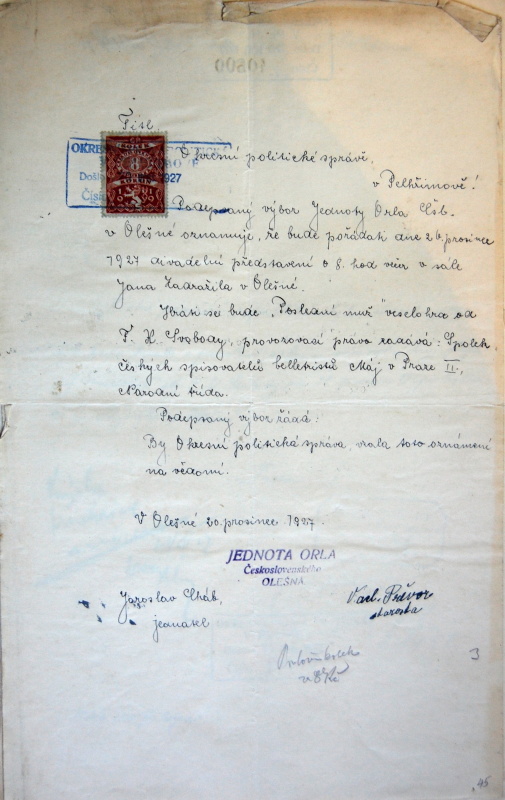 Titl.
Okresní politické správě,
v Pelhřimově!
Podepsaný výbor Jednoty Orla Čsb.
v Olešné oznamuje, že bude pořádati dne 26. prosince
1927 divadelní představení o 8. hod večer v sále
Jana Zadražila v Olešné.
Hráti se bude „Poslední muž" veselohra od
F. X. Svobody, provozovací právo zadává: Spolek
českých spisovatelů belletristů Máj v Praze II.,
Národní třída.
Podepsaný výbor žádá:
By Okresní politická správa, vzala toto oznámení
na vědomí.
V Olešné 20. prosince 1927.
JEDNOTA ORLA
Československého
OLEŠNÁ
Jaroslav Cháb,
jednatel
Vacl. Převor
starosta
v 8 Kč
3
45